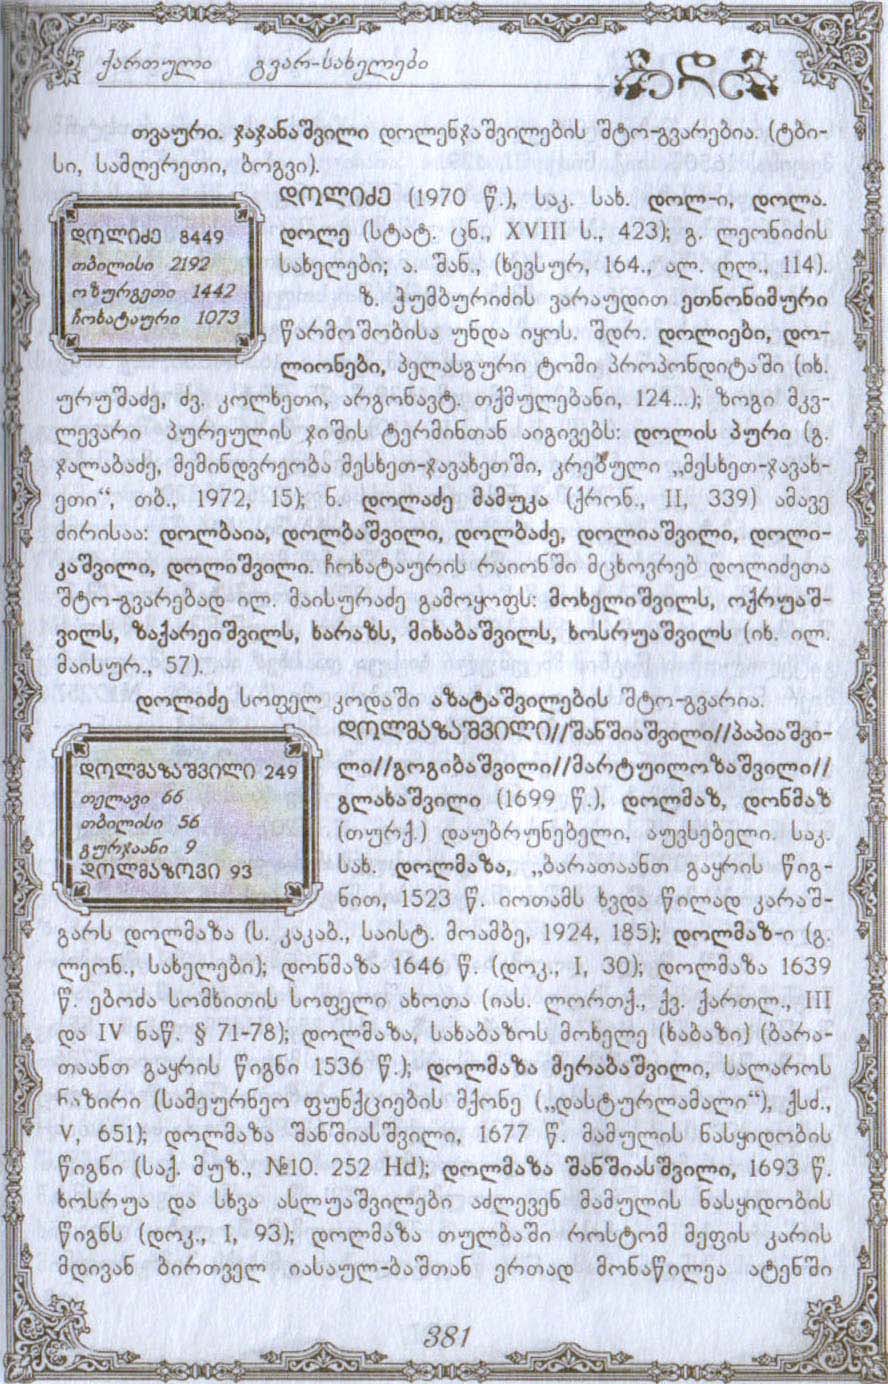 ქართული გვარ-სახელები
დ
თვაური. ჯაჯანაშვილი დოლენჯაშვილების შტო-გვარებია. (ტბი-
სი, სამღერეთი, ბოგვი).
დოლიძე 8449
თბილისი 2192
ოზურგეთი 1442
ჩოხატაური 1073
დოლიძე (1970 წ.), საკ. სახ. დოლ-ი, დოლა.
დოლე (სტატ. ცნ., XVIII ს., 423); გ. ლეონიძის
სახელები; ა. შან., (ხევსურ, 164., ალ. ღლ., 114).
ზ. ჭუმბურიძის ვარაუდით ეთნონიმური
წარმოშობისა უნდა იყოს. შდრ. დოლიები, დო-
ლიონები, პელასგური ტომი პროპონდიტაში (იხ.
ურუშაძე, ძვ. კოლხეთი, არგონავტ. თქმულებანი, 124...); ზოგი მკვ-
ლევარი პურეულის ჯიშის ტერმინთან აიგივებს: დოლის პური (გ.
ჯალაბაძე, მემინდვრეობა მესხეთ-ჯავახეთში, კრებული „მესხეთ-ჯავახ-
ეთი“, თბ., 1972, 15); ნ. დოლაძე მამუკა (ქრონ., II, 339) ამავე
ძირისაა: დოლბაია, დოლბაშვილი, დოლბაძე, დოლიაშვილი, დოლი-
კაშვილი, დოლიშვილი. ჩოხატაურის რაიონში მცხოვრებ დოლიძეთა
შტო-გვარებად ილ. მაისურაძე გამოყოფს: მოხელიშვილს, ოქრუაშ-
ვილს, ზაქარეიშვილს, ხარაზს, მიხაბაშვილს, ხოსრუაშვილს (იხ. ილ.
მაისურ., 57).
დოლიძე სოფელ კოდაში აზატაშვილების შტო-გვარია.
დოლმაზაშვილი 249
თელავი 66
თბილისი 56
გურჯაანი 9
დოლმაზოვი 93
დოლმაზაშვილი//შანშიაშვილი//პაპიაშვი-
ლი//გოგიბაშვილი//მარტუილოზაშვილი//
გლახაშვილი (1699 წ.), დოლმაზ, დონმაზ
(თურქ.) დაუბრუნებელი, აუვსებელი. საკ.
სახ. დოლმაზა, „ბარათაანთ გაყრის წიგ-
ნით, 1523 წ. იოთამს ხვდა წილად კარაშ-
გარს დოლმაზა (ს. კაკაბ., საისტ. მოამბე, 1924, 185); დოლმაზ-ი (გ.
ლეონ., სახელები); დონმაზა 1646 წ. (დოკ., I, 30); დოლმაზა 1639
წ. ებოძა სომხითის სოფელი ახოთა (იას. ლორთქ., ქვ. ქართლ., III
და IV ნაწ. § 71-78); დოლმაზა, სახაბაზოს მოხელე (ხაბაზი) (ბარა-
თაანთ გაყრის წიგნი 1536 წ.); დოლმაზა მერაბაშვილი, სალაროს
ნაზირი (სამეურნეო ფუნქციების მქონე („დასტურლამალი“), ქსძ.,
V, 651); დოლმაზა შანშიასშვილი, 1677 წ. მამულის ნასყიდობის
წიგნი (საქ. მუზ., №10. 252 Hd); დოლმაზა შანშიასშვილი, 1693 წ.
ხოსრუა და სხვა ასლუაშვილები აძლევენ მამულის ნასყიდობის
წიგნს (დოკ., I, 93); დოლმაზა თულბაში როსტომ მეფის კარის
მდივან ბირთველ იასაულ-ბაშთან ერთად მონაწილეა ატენში
381